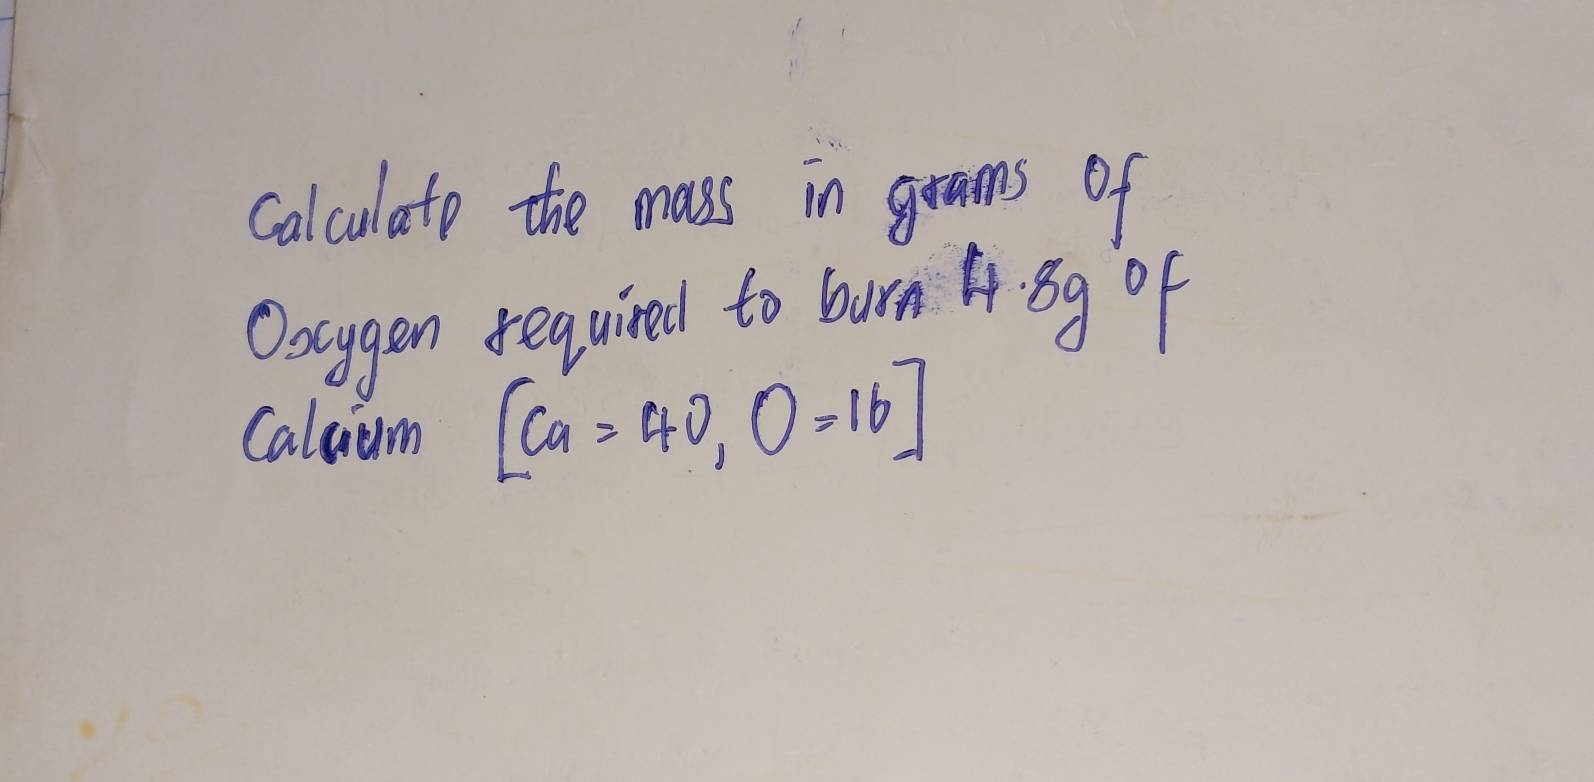 Calculate the mass in grams of
Oxygen required to burn 4.8g of
Calcium [Ca = 40, O = 16]